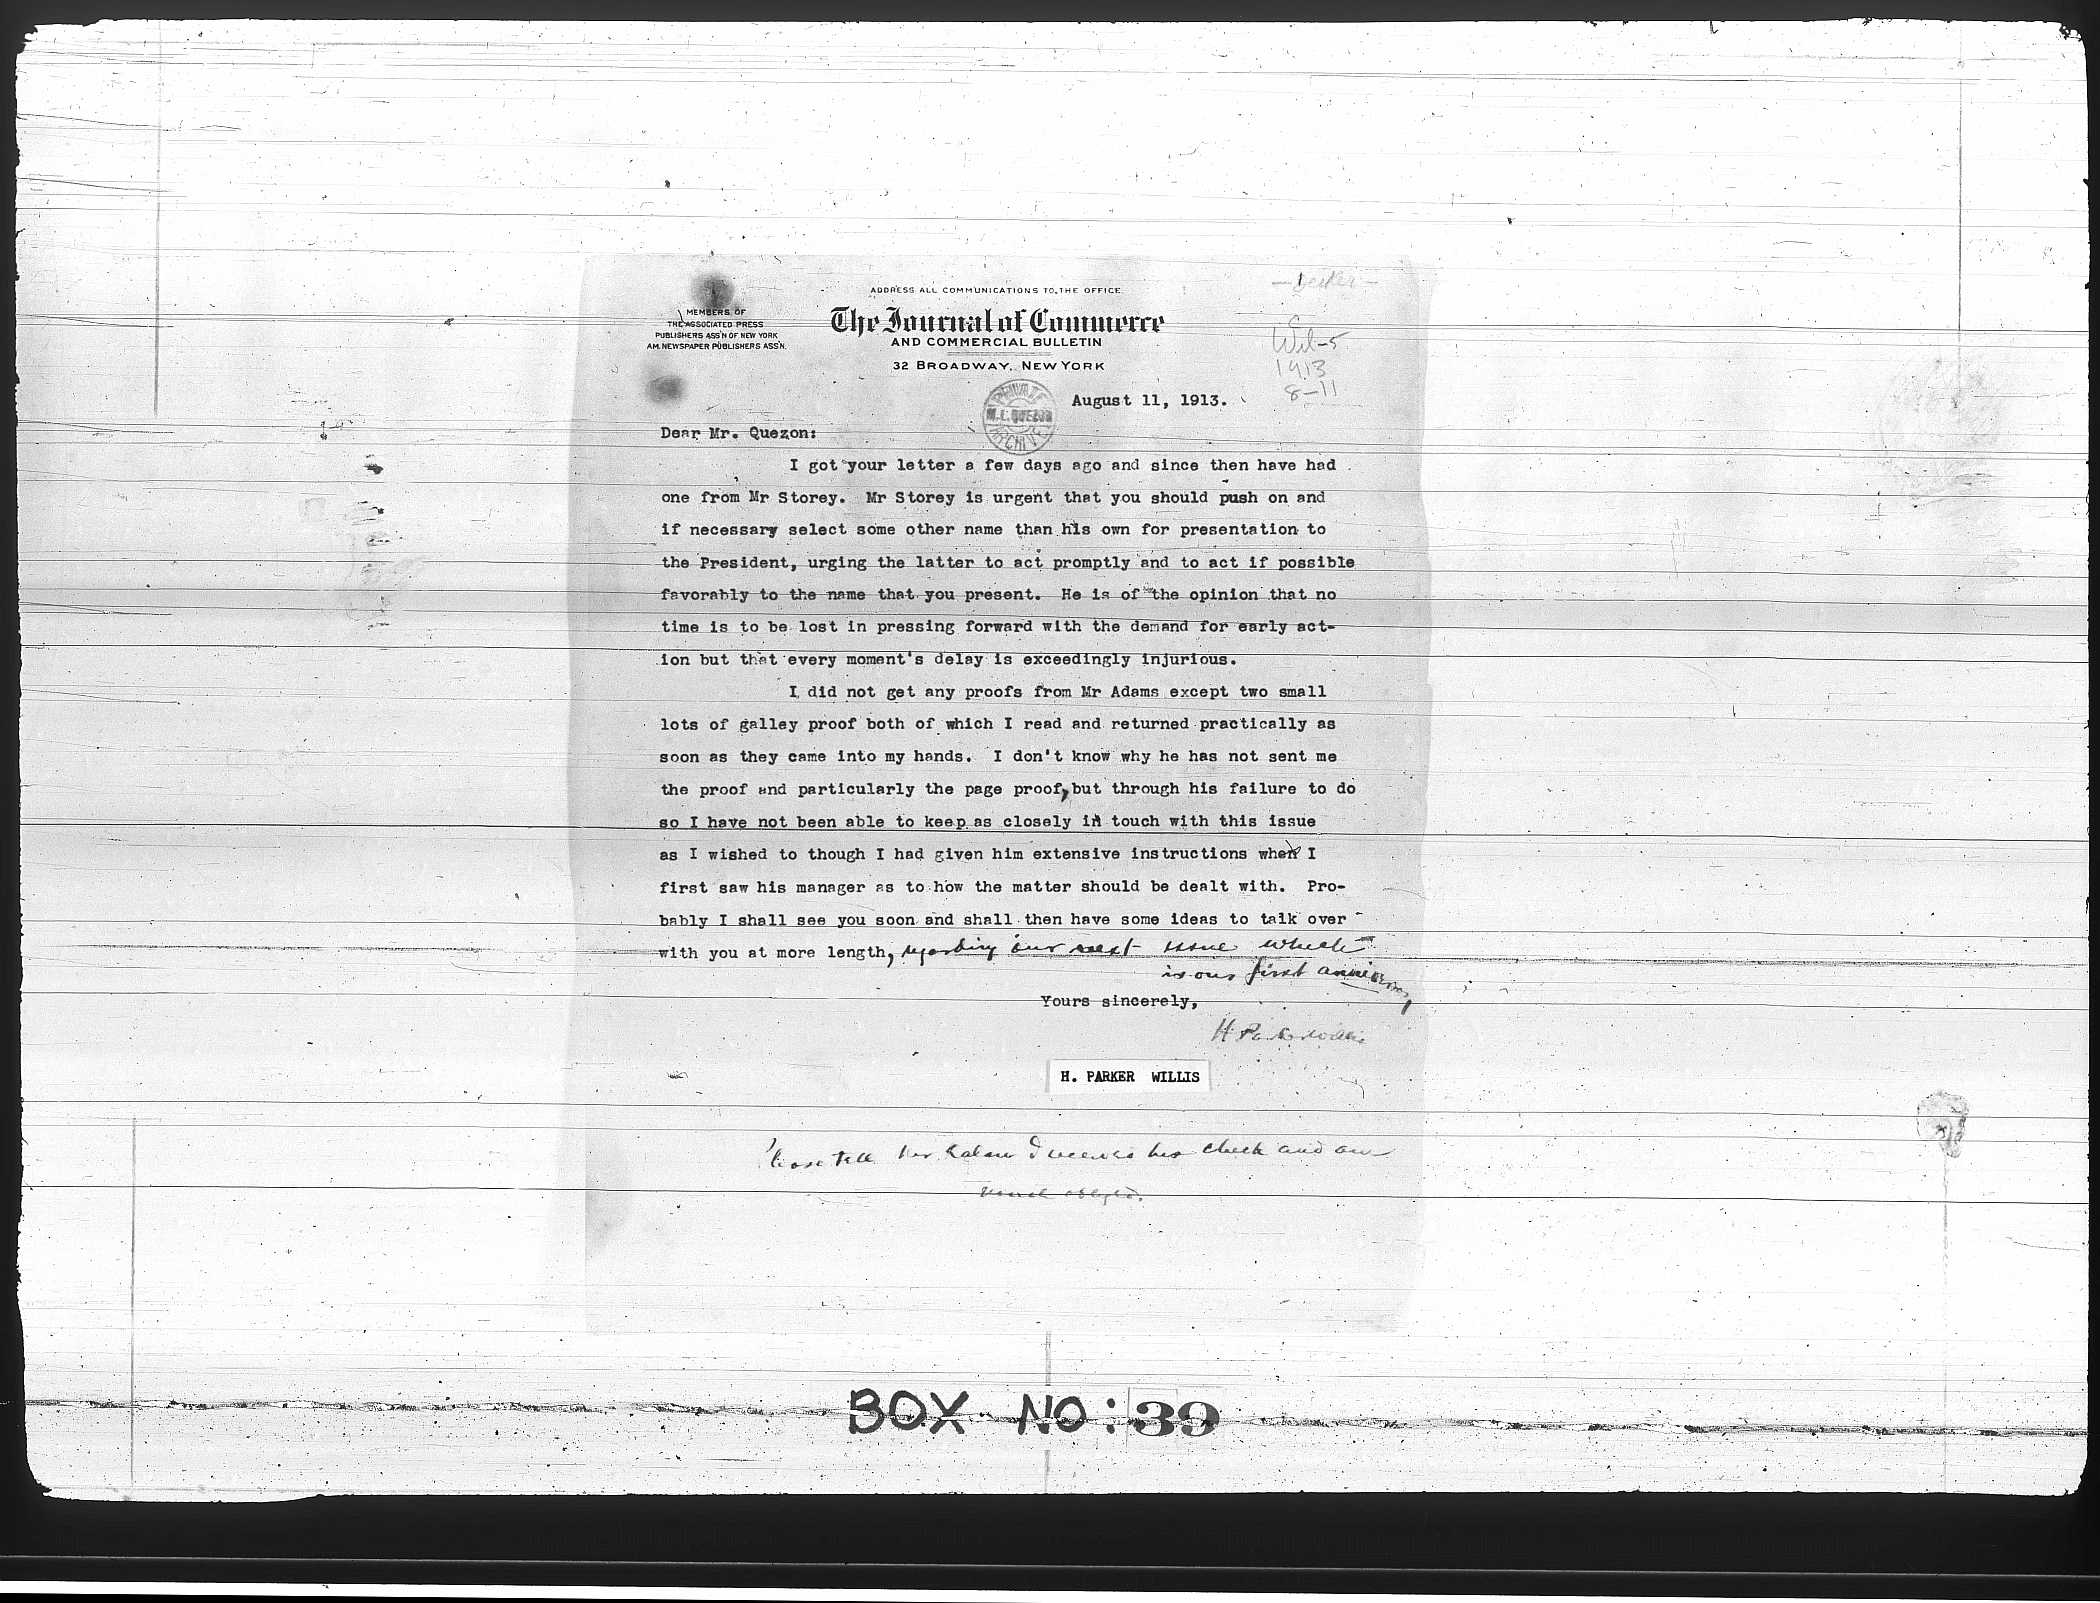 ADDRESS ALL COMMUNICATIONS TO THE OFFICE
MEMBERS OF
THE ASSOCIATED PRESS
PUBLISHERS ASS'N OF NEW YORK
AM. NEWSPAPER PUBLISHERS ASS'N.
The Journal of Commerce
AND COMMERCIAL BULLETIN
32 BROADWAY, NEW YORK
Wil-5
1913
8-11
PRIVATE
M.L. QUEZON
ARCHIVE
August 11, 1913.
Dear Mr. Quezon:
I got your letter a few days ago and since then have had
one from Mr Storey. Mr Storey is urgent that you should push on and
if necessary select some other name than his own for presentation to
the President, urging the latter to act promptly and to act if possible
favorably to the name that you present. He is of the opinion that no
time is to be lost in pressing forward with the demand for early act-
ion but that every moment's delay is exceedingly injurious.
I did not get any proofs from Mr Adams except two small
lots of galley proof both of which I read and returned practically as
soon as they came into my hands. I don't know why he has not sent me
the proof and particularly the page proof, but through his failure to do
so I have not been able to keep as closely in touch with this issue
as I wished to though I had given him extensive instructions when I
first saw his manager as to how the matter should be dealt with. Pro-
bably I shall see you soon and shall then have some ideas to talk over
with you at more length, regarding our next issue which
is our first anniversary
Yours sincerely,
H Parker Willis
H. PARKER WILLIS
Please tell Mr. I received his check and am
much obliged.
BOX NO: 39